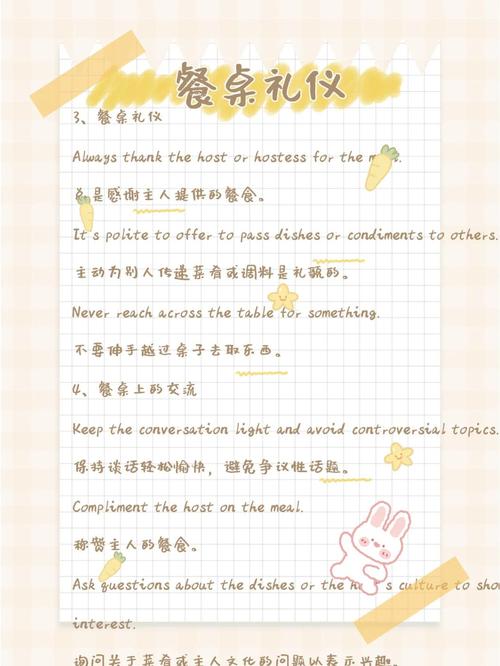 餐桌礼仪
3、餐桌礼仪
Always thank the host or hostess for the
总是感谢主人提供的餐食。
It's polite to offer to pass dishes or condiments to others.
主动为别人传递菜肴或调料是礼貌的。
Never reach across the table for something.
不要伸手越过桌子去取东西。
4、餐桌上的交流
Keep the conversation light and avoid controversial topics.
保持谈话轻松愉快，避免争议性话题。
Compliment the host on the meal.
称赞主人的餐食。
Ask questions about the dishes or the culture to show
interest.
询问关于菜肴或主人文化的问题以表示兴趣。